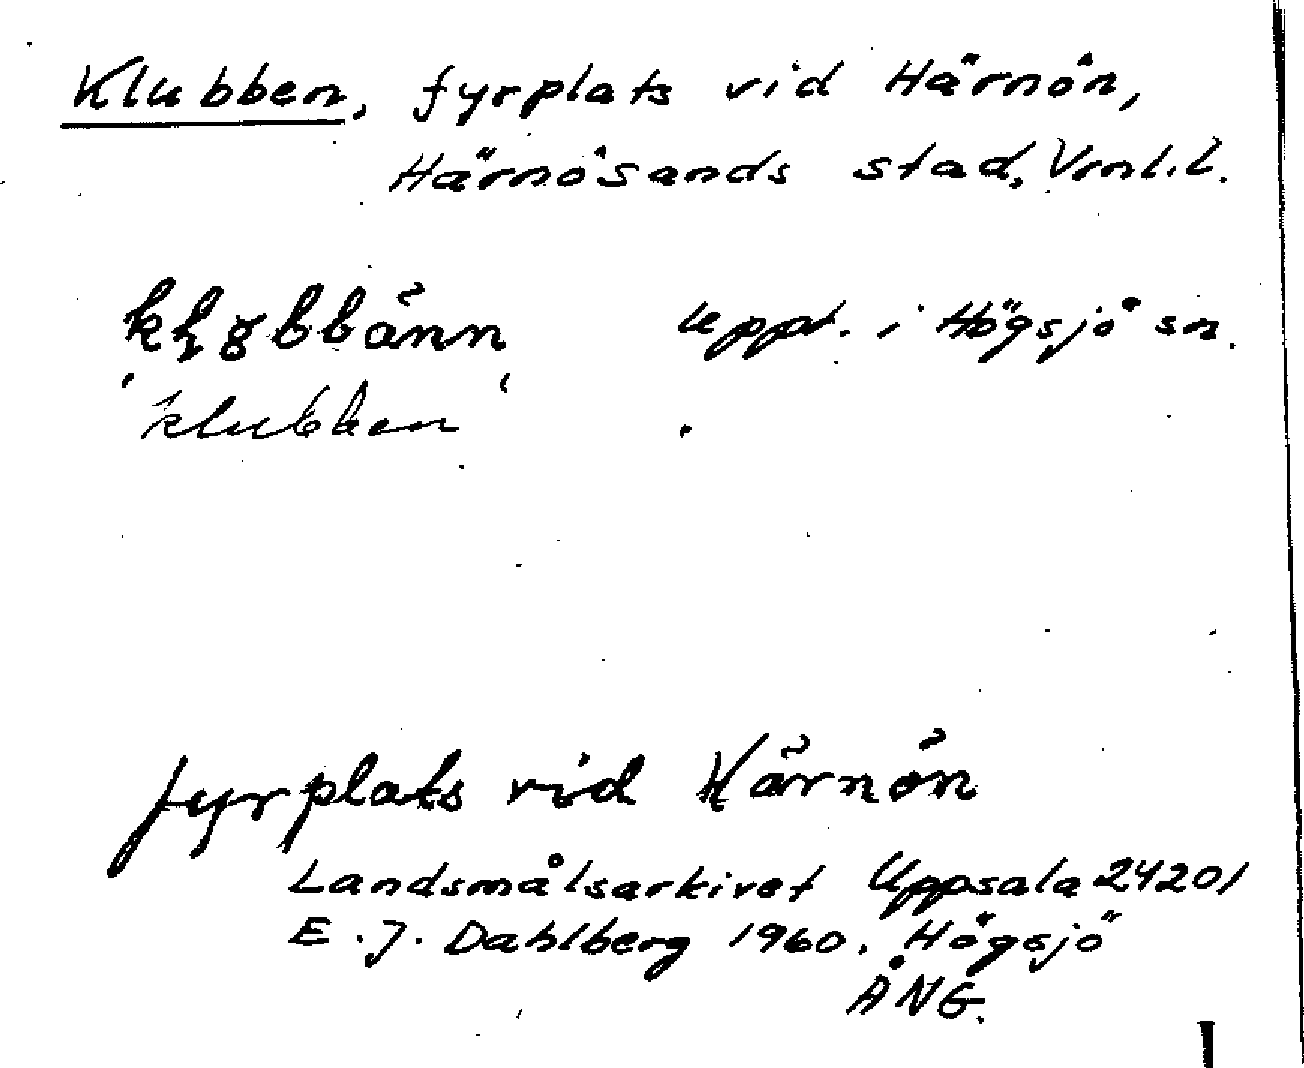 Klubben, fyrplats vid Härnön,
Härnösands stad, Vrnl.l.
Uppt. i Högsjö sn.
'klubben'
fyrplats vid Härnön
Landsmålsarkivet Uppsala 24201
E. J. Dahlberg 1960. Högsjö
ÅNG.